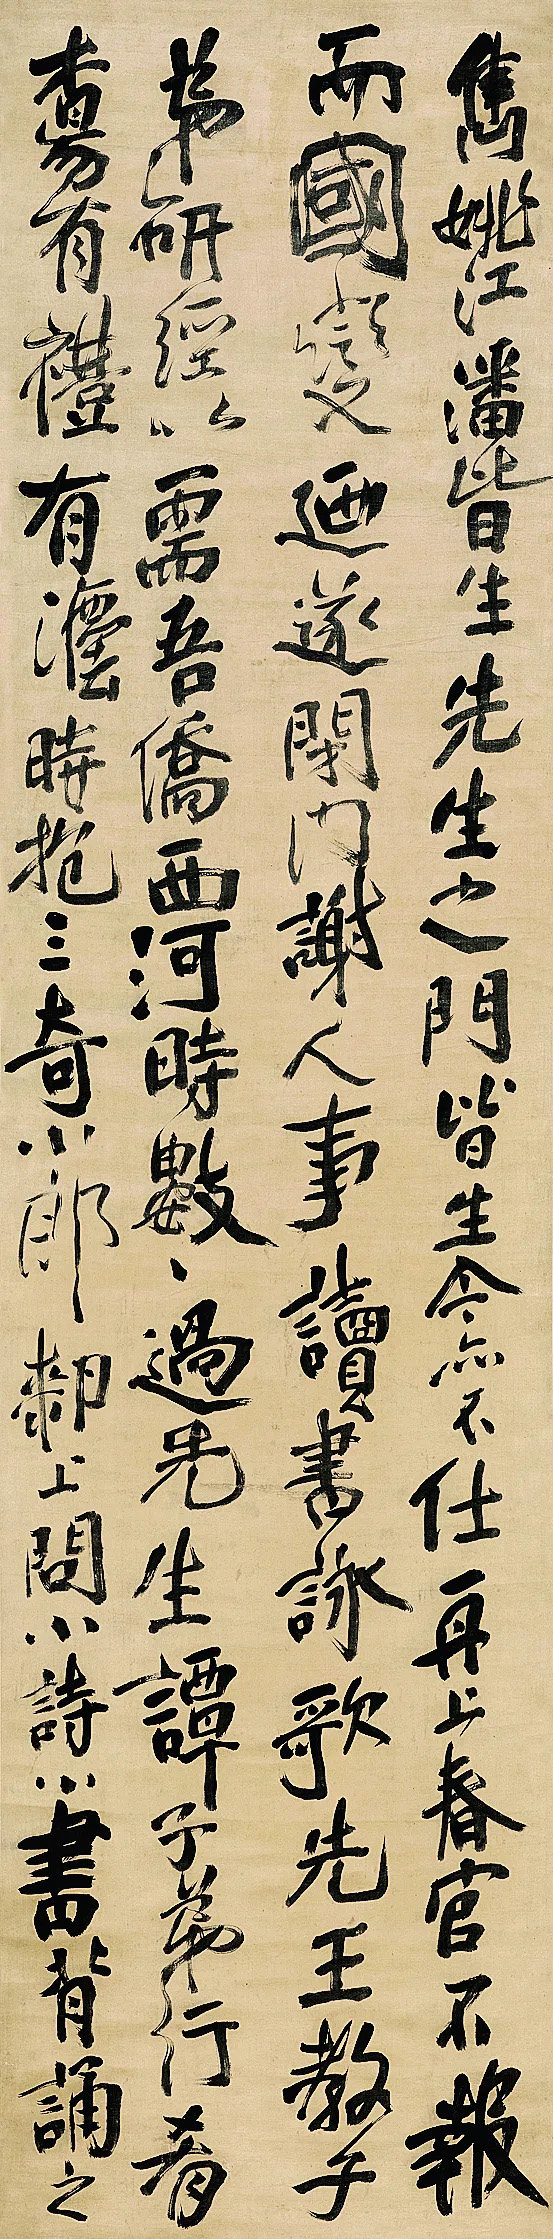 雋姚江潘皆生先生之門皆生今亦不仕再上春官不報
而國變迺遂閉門謝人事讀書詠歌先王教子
弟研經以需吾儕西河時數數過先生譚子弟行肴
有禮有灋時抱三奇小郎上問小詩小書背誦之